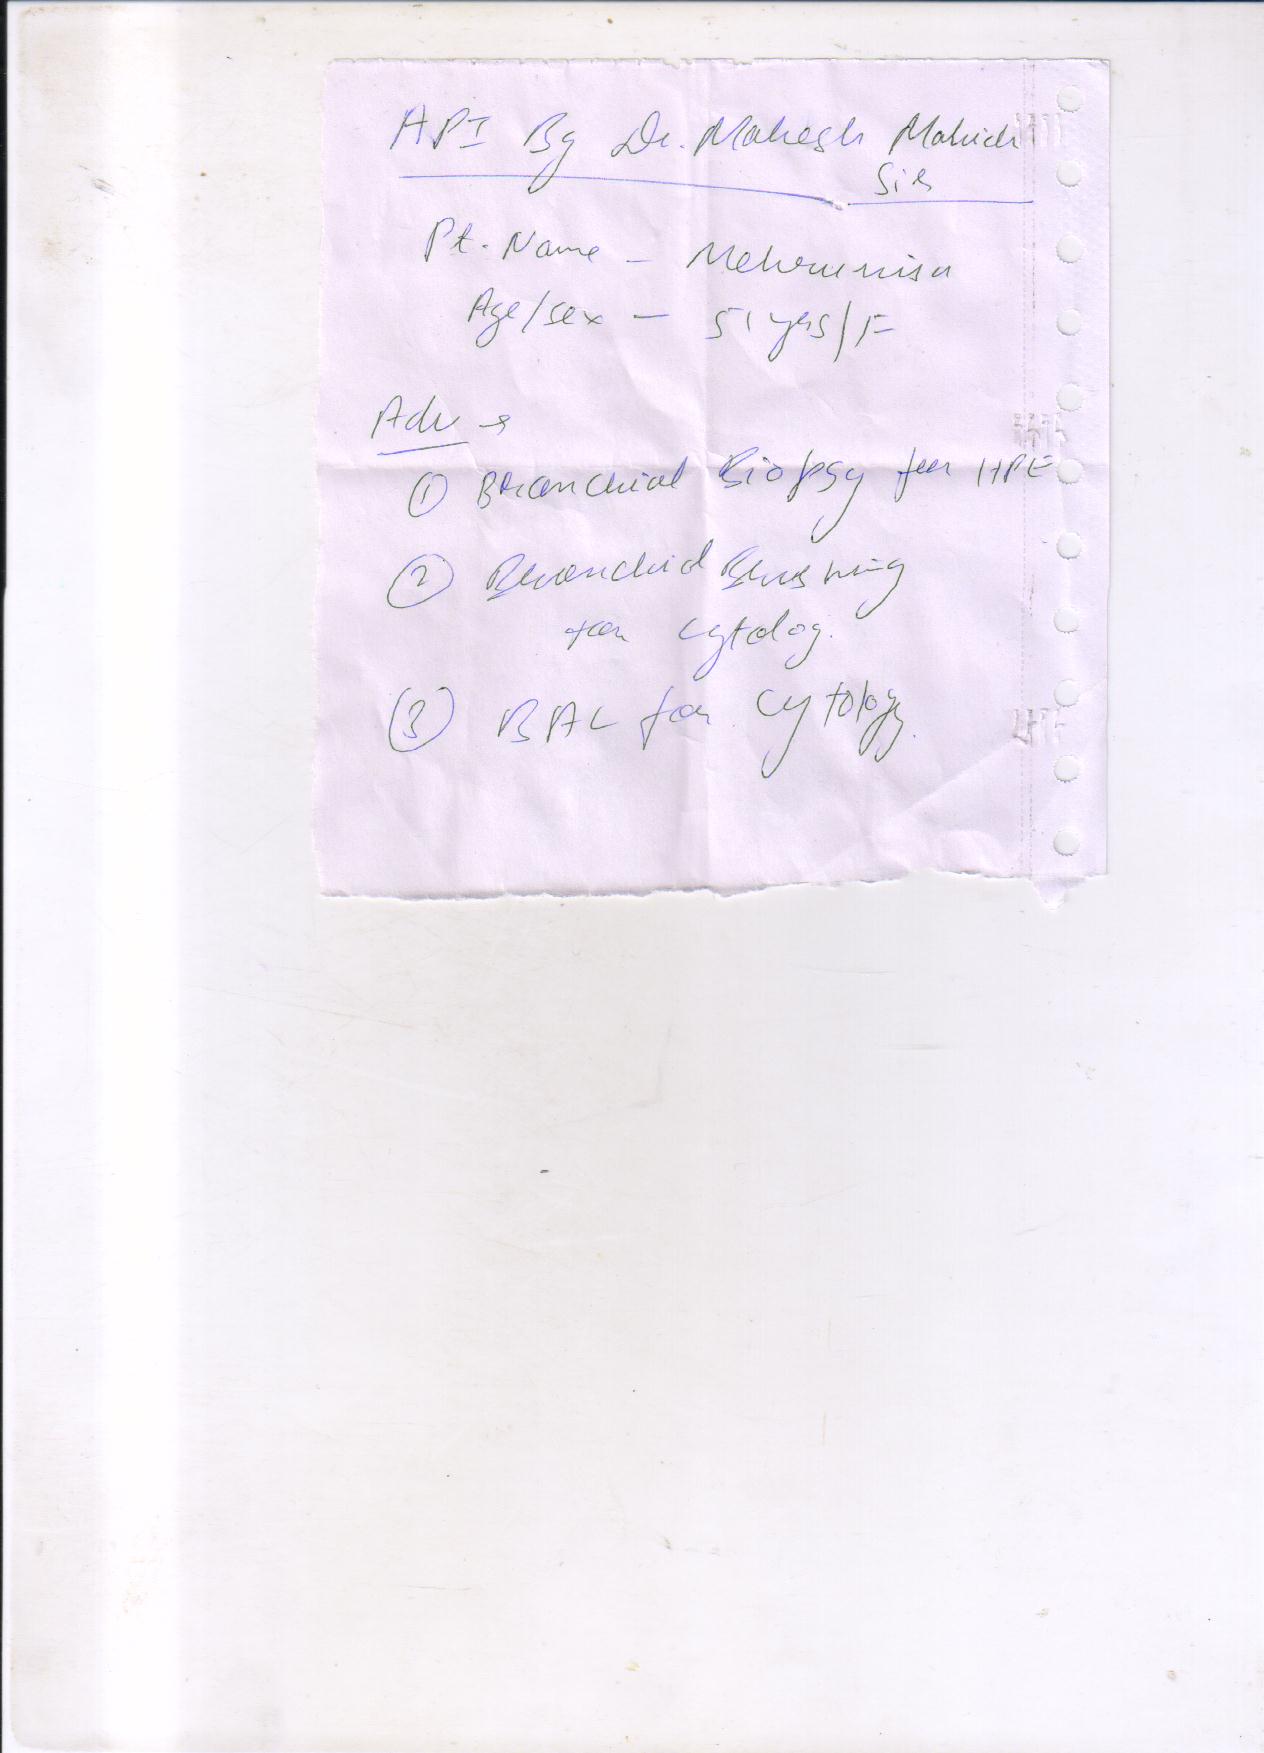 API By Dr. Mahesh Mahich
Sir
Pt. Name - Mehrunnisa
Age/Sex - 51 yrs/F
Adv →
① Bronchial Biopsy for HPE
② Bronchial Brushing
for cytology.
③ BAL for cytology.